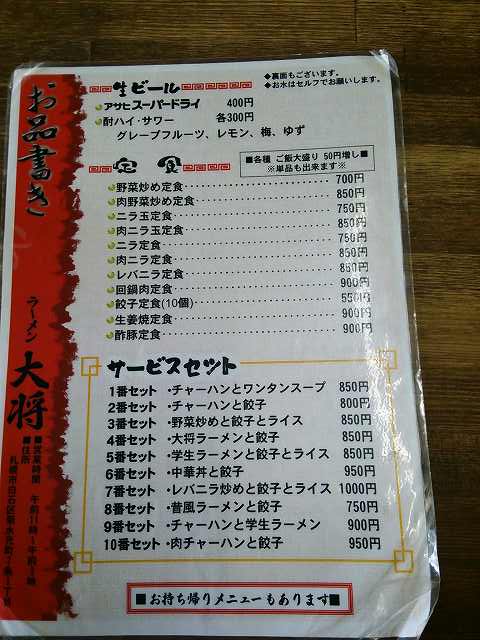 お品書き
ラーメン 大将
■営業時間 午前11時〜午前1時
■住所
札幌市白石区菊水元町7条1丁目
生ビール
◆裏面もございます。
◆お水はセルフでお願いします。
アサヒスーパードライ 400円
酎ハイ・サワー 各300円
グレープフルーツ、レモン、梅、ゆず
定食
■各種 ご飯大盛り 50円増し■
※単品も出来ます※
野菜炒め定食 700円
肉野菜炒め定食 850円
ニラ玉定食 750円
肉ニラ玉定食 850円
ニラ定食 750円
肉ニラ定食 850円
レバニラ定食 850円
回鍋肉定食 900円
餃子定食(10個) 550円
生姜焼定食 900円
酢豚定食 900円
サービスセット
1番セット ・チャーハンとワンタンスープ 850円
2番セット ・チャーハンと餃子 800円
3番セット ・野菜炒めと餃子とライス 850円
4番セット ・大将ラーメンと餃子 850円
5番セット ・学生ラーメンと餃子とライス 850円
6番セット ・中華丼と餃子 950円
7番セット ・レバニラ炒めと餃子とライス 1000円
8番セット ・昔風ラーメンと餃子 750円
9番セット ・チャーハンと学生ラーメン 900円
10番セット ・肉チャーハンと餃子 950円
■お持ち帰りメニューもあります■